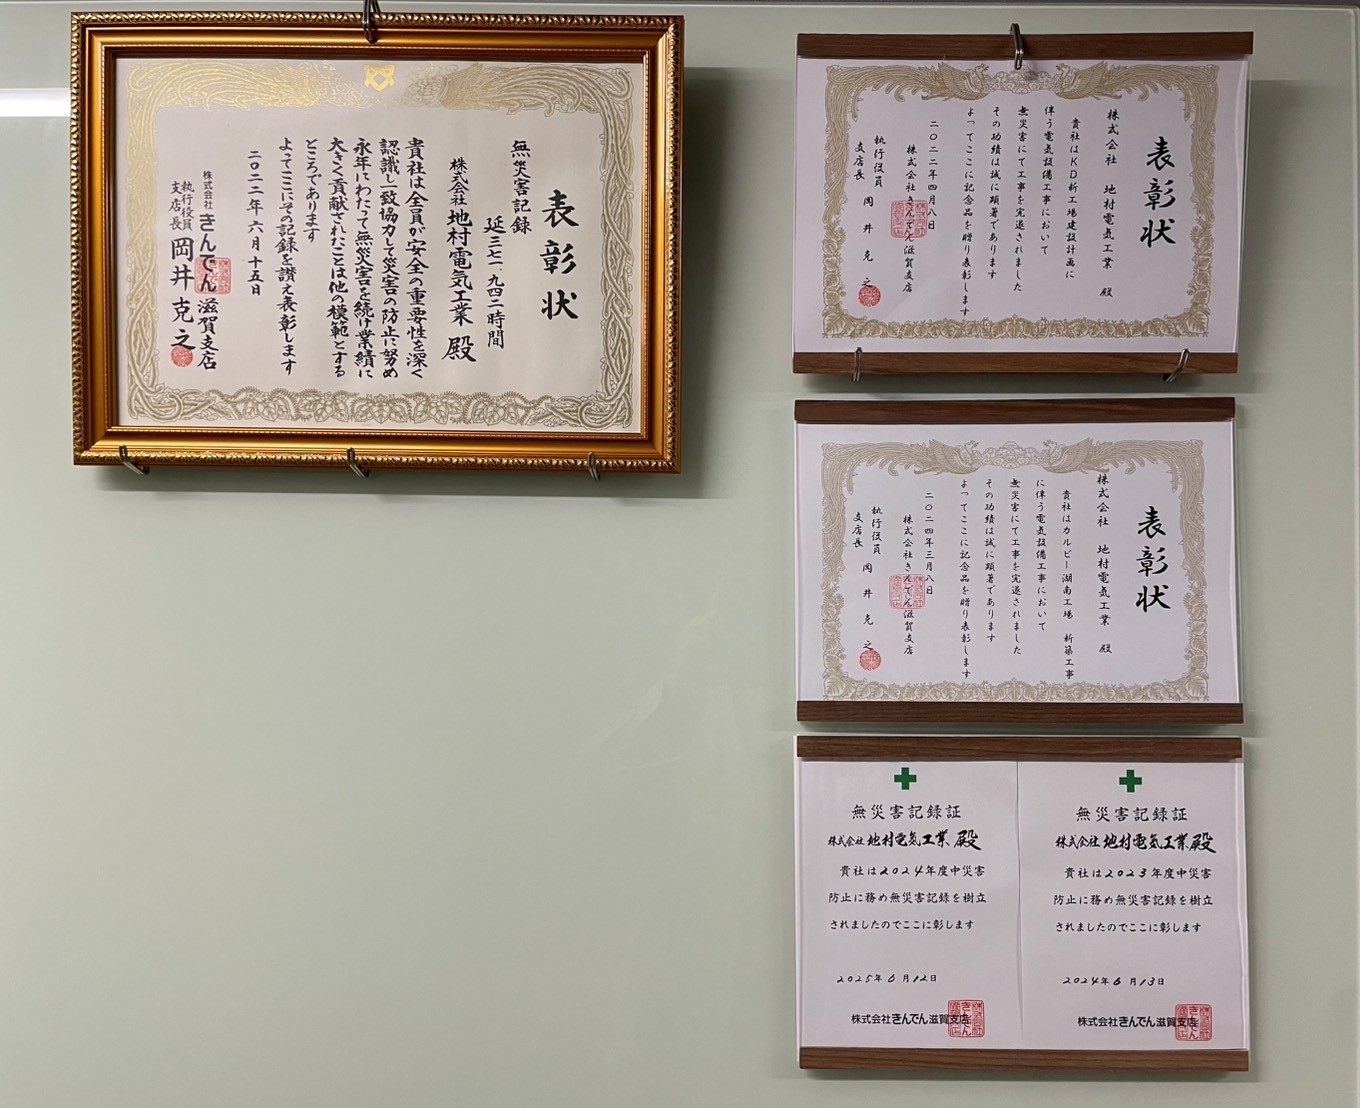 表彰状
無災害記録
延三七一、九四二時間
株式会社 地村電気工業 殿
貴社は全員が安全の重要性を深く
認識し一致協力して災害の防止に努め
永年にわたって無災害を続け業績に
大きく貢献されたことは他の模範とする
ところであります
よってここにその記録を讃え表彰します
二〇二二年六月十五日
株式会社きんでん滋賀支店
執行役員
支店長 岡井克之
表彰状
株式会社 地村電気工業 殿
貴社はKD新工場建設計画に
伴う電気設備工事において
無災害にて工事を完遂されました
その功績は誠に顕著であります
よってここに記念品を贈り表彰します
二〇二二年四月八日
株式会社きんでん滋賀支店
執行役員
支店長 岡井克之
表彰状
株式会社 地村電気工業 殿
貴社はカルビー湖南工場 新築工事
に伴う電気設備工事において
無災害にて工事を完遂されました
その功績は誠に顕著であります
よってここに記念品を贈り表彰します
二〇二四年三月八日
株式会社きんでん滋賀支店
執行役員
支店長 岡井克之
無災害記録証
株式会社 地村電気工業 殿
貴社は2024年度中災害
防止に務め無災害記録を樹立
されましたのでここに彰します
2025年6月12日
株式会社きんでん滋賀支店
無災害記録証
株式会社 地村電気工業 殿
貴社は2023年度中災害
防止に務め無災害記録を樹立
されましたのでここに彰します
2024年6月13日
株式会社きんでん滋賀支店